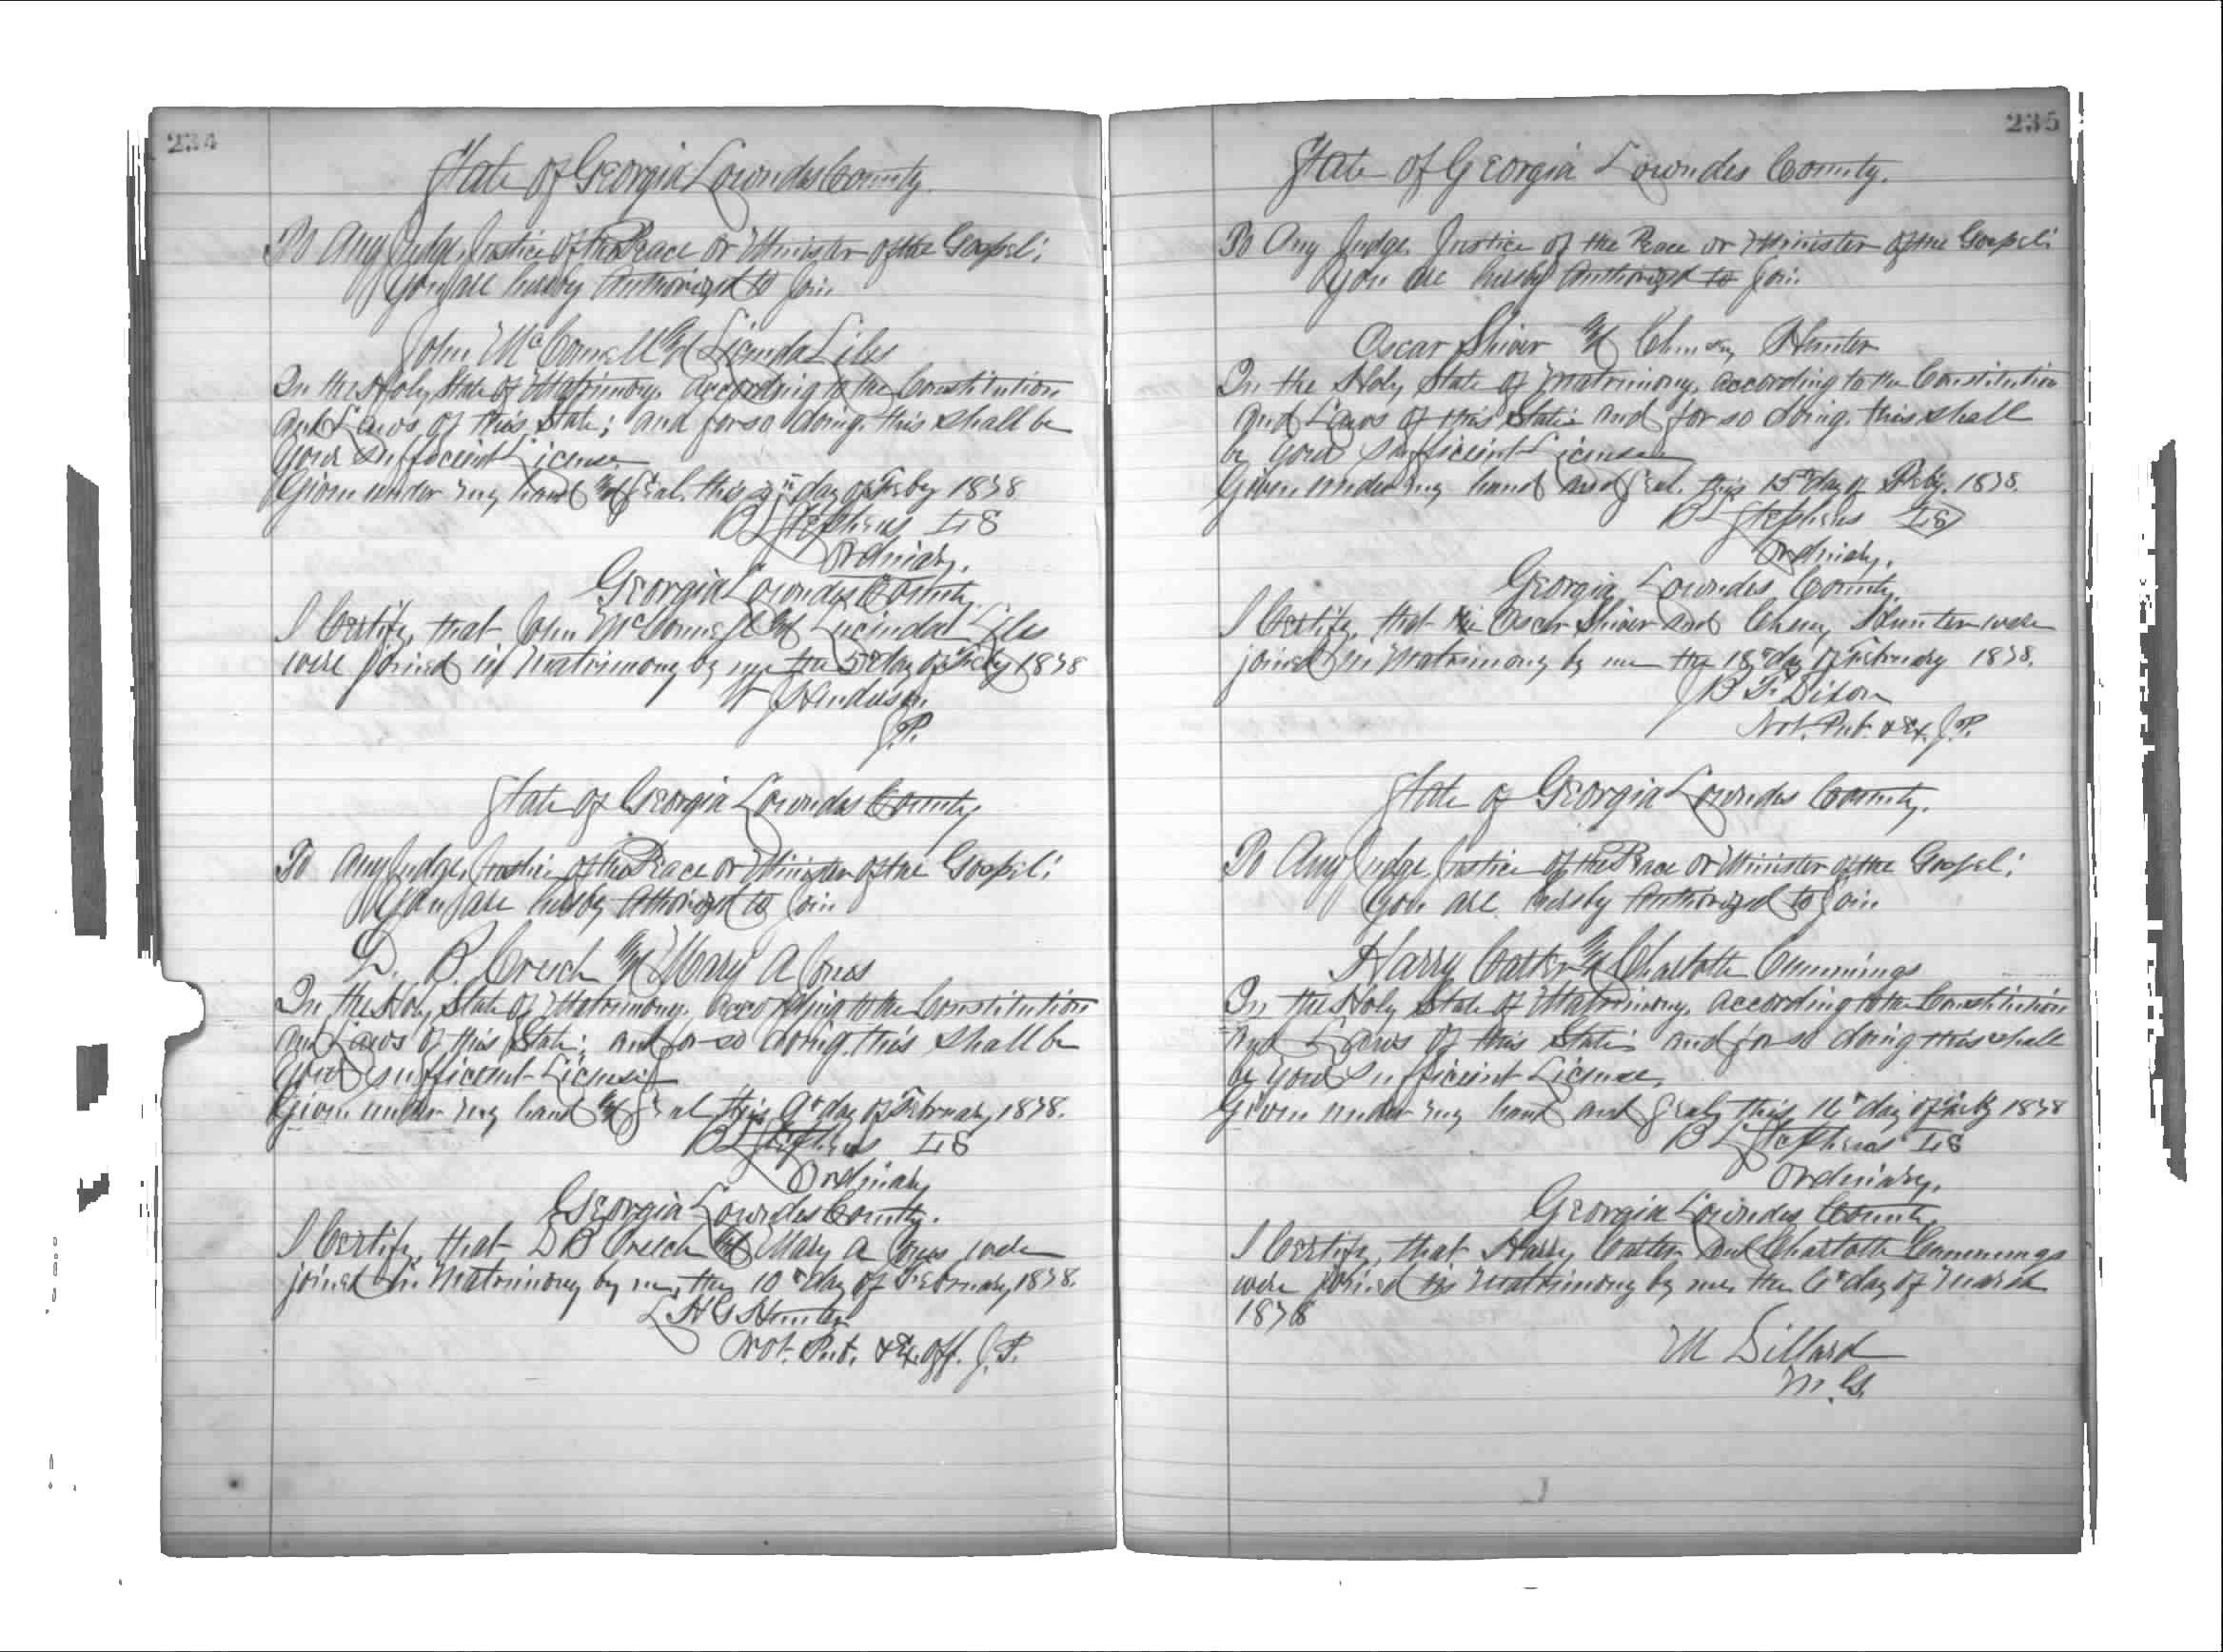 234
State of Georgia Lowndes County.
To Any Judge, Justice of the Peace or Minister of the Gospel:
You are hereby Authorized to Join
John McConnell and Lucinda Liles
In the Holy State of Matrimony, according to the Constitution
and Laws of this State; and for so doing, this shall be
your sufficient License.
Given under my hand and Seal, this day of Feby 1878
B L Stephens LS
Ordinary.
Georgia Lowndes County.
I Certify, that John McConnell and Lucinda Liles
were joined in Matrimony by me the 5th day of Feby 1878
Henderson,
J.P.
State of Georgia Lowndes County
To Any Judge, Justice of the Peace or Minister of the Gospel:
You are hereby Athorized to Join
D. B. Creech and Mary A Jones
In the Holy State of Matrimony, according to the Constitution
and Laws of this State; and for so doing, this shall be
your sufficient License
Given under my hand and Seal this 9th day of February 1878.
B L Stephens LS
Ordinary
Georgia Lowndes County.
I Certify, that D B Creech and Mary A Jones were
joined in Matrimony by me, the 10th day of February, 1878.
Hunter
Not. Pub. & Ex. Off. J.P.
235
State of Georgia Lowndes County.
To Any Judge, Justice of the Peace or Minister of the Gospel:
You are hereby Authorized to Join
Oscar Shiver and Hunter
In the Holy State of Matrimony, according to the Constitution
and Laws of this State and for so doing, this shall
be your sufficient License
Given under my hand and Seal, this 15th day of Feby. 1878.
B L Stephens LS
Ordinary.
Georgia Lowndes County.
I Certify, that Oscar Shiver and Hunter were
joined in Matrimony by me the 18th day of February 1878.
B F Dixon
Not. Pub. & Ex. J.P.
State of Georgia Lowndes County.
To Any Judge, Justice of the Peace or Minister of the Gospel:
You are hereby Authorized to Join
Harry Carter and Charlotte Cummings
In the Holy State of Matrimony, according to the Constitution
and Laws of this State and for so doing this shall
be your sufficient License.
Given under my hand and Seal, this day of Feby 1878
B L Stephens LS
Ordinary.
Georgia Lowndes County
I Certify, that Harry Carter and Charlotte Cummings
were joined in Matrimony by me, the 6th day of March
1878
M Dillard
M.G.